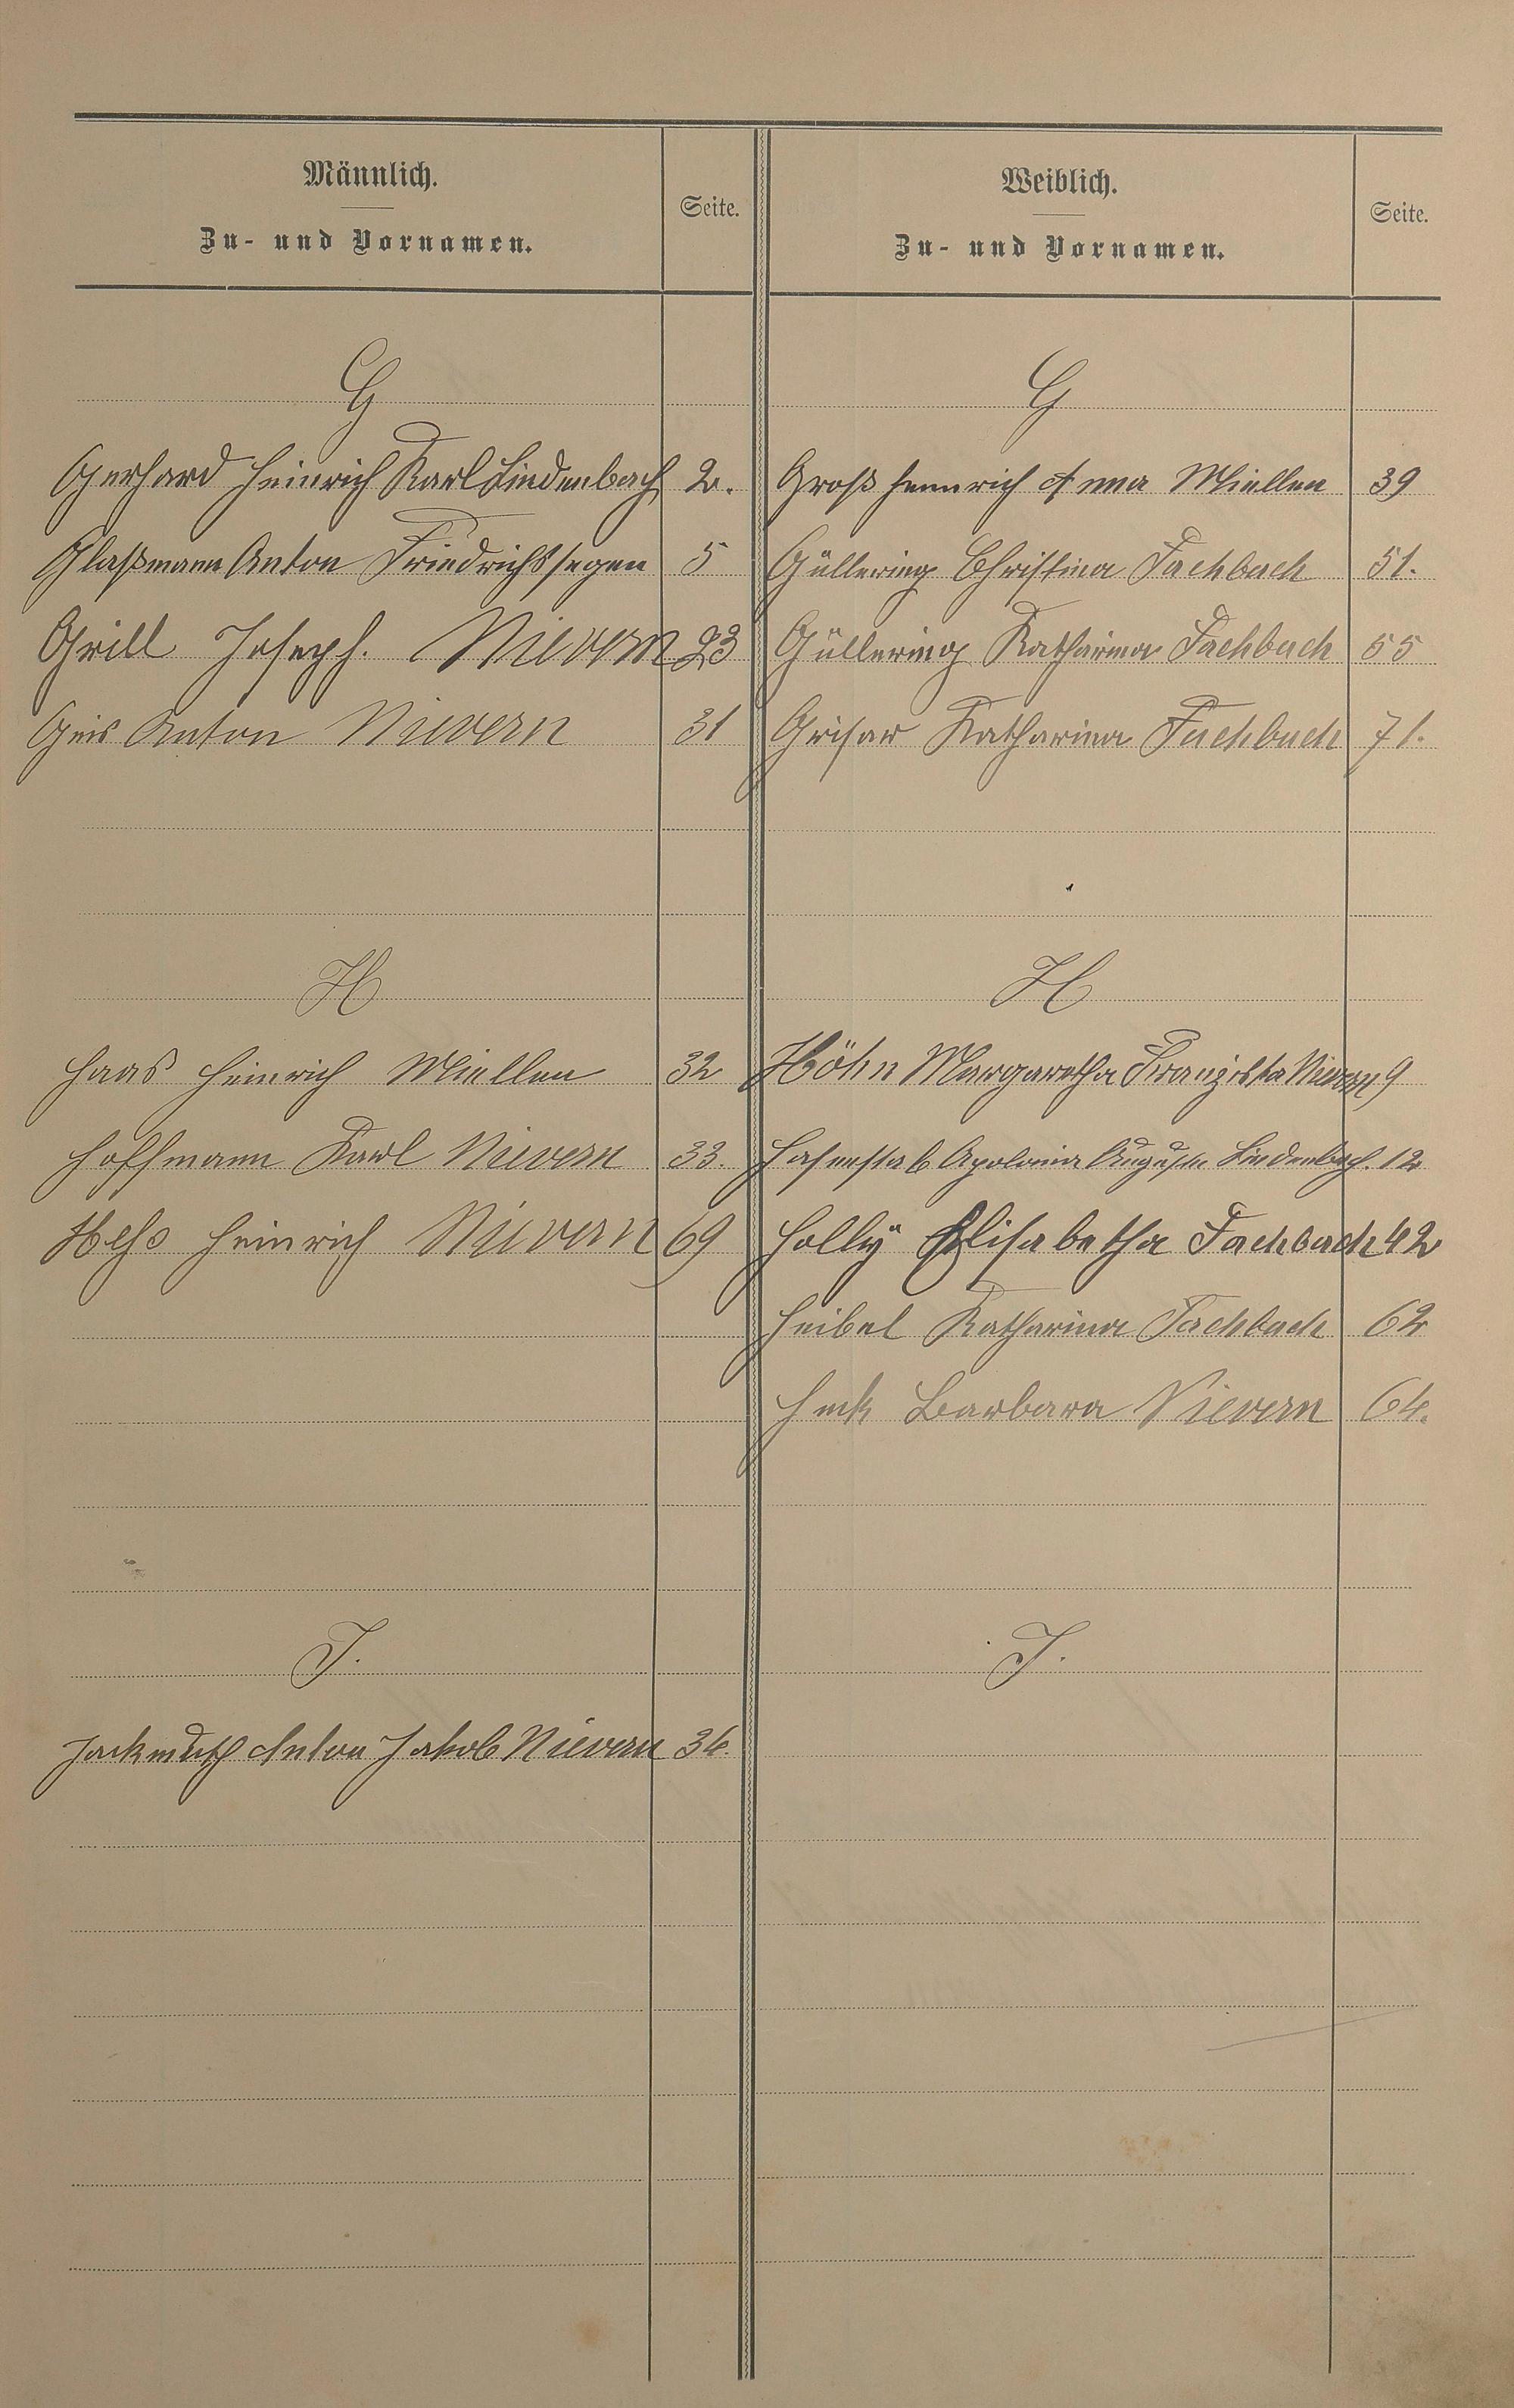 Männlich.
Zu- und Vornamen.
Seite.
Weiblich.
Zu- und Vornamen.
Seite.
G
G
Gerhard Heinrich Karl Lindenbach 2.
Großhennrich Anna Miellen 39
Glaßmann Anton Friedrichssegen 5
Güllering Christina Fachbach 51.
Grill Joseph. Nievern 23
Güllering Katharina Fachbach 55
Geis Anton Nievern 31
Grisar Katharina Fachbach 71.
H
H
Haas Heinrich Miellen 32
Höhn Margaretha Franziska Nievern 9
Hoffmann Karl Nievern 33.
Hasenstab Apolonia Auguste Lindenbach. 12
Hess Heinrich Nievern 69
Holly Elisabetha Fachbach 42
Heibel Katharina Fachbach 62
Heck Barbara Nievern 64.
J.
J.
Jackmuth Anton Jakob Nievern 34.